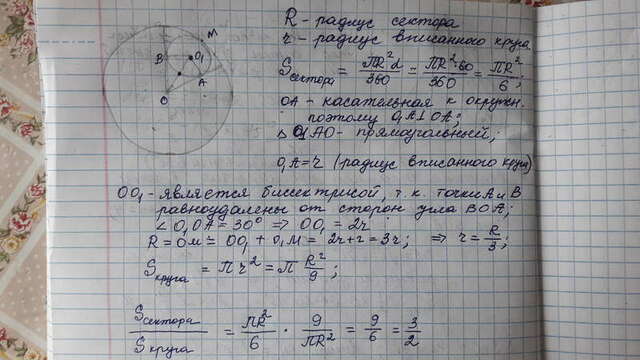 M
B
O₁
A
O
R - радиус сектора
r - радиус вписанного круга
Sсектора = ПR²α/360 = ПR²60/360 = ПR²/6;
OA - касательная к окружн.
поэтому O₁A⊥OA;
△ O₁AO - прямоугольный;
O₁A = r (радиус вписанного круга)
OO₁ - является биссектрисой, т.к. точки A и B
равноудалены от сторон угла BOA;
∠ O₁OA = 30° ⇒ OO₁ = 2r
R = OM = OO₁ + O₁M = 2r + r = 3r; ⇒ r = R/3;
Sкруга = Пr² = П R²/9;
Sсектора/Sкруга = ПR²/6 · 9/ПR² = 9/6 = 3/2